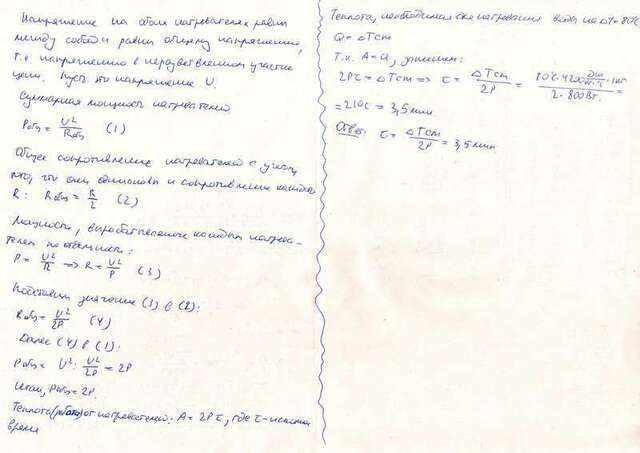 Напряжение на обоих нагревателях равны
между собой и равны общему напряжению,
т.е. напряжению в неразветвленном участке
цепи. Пусть это напряжение U.
Суммарная мощность нагревателей
Pобщ = U²/Rобщ (1)
Общее сопротивление нагревателей с учетом
того, что они одинаковы и сопротивление каждого
R: Rобщ = R/2 (2)
Мощность, вырабатываемое каждым нагрева-
телем по отдельности:
P = U²/R => R = U²/P (3)
Подставим значение (3) в (2):
Rобщ = U²/2P (4)
Далее (4) в (1):
Pобщ = U² : U²/2P = 2P
Итак, Pобщ = 2P.
Теплота (работа) от нагревателей: A = 2Pτ, где τ - искомое
время
Теплота, необходимая для нагревания воды на ΔT = 80°C
Q = ΔTcm
Т.к. A = Q, запишем:
2Pτ = ΔTcm => τ = ΔTcm/2P = 80°C · 4200 Дж/кг·°C · 1кг / 2 · 800Вт. =
= 210с = 3,5 мин.
Ответ: τ = ΔTcm/2P = 3,5 мин.